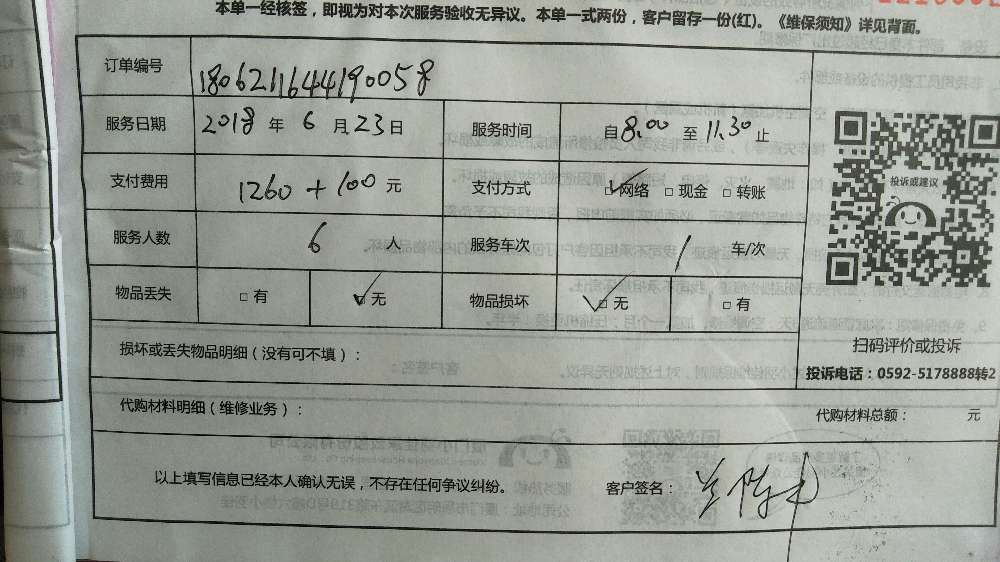 本单一经核签，即视为对本次服务验收无异议。本单一式两份，客户留存一份(红)。《维保须知》详见背面。
订单编号 1806211644190058
服务日期 2018 年 6 月 23 日 服务时间 自 8:00 至 11:30 止
支付费用 1260+100 元 支付方式 □网络 □现金 □转账
服务人数 6 人 服务车次 1 车/次
物品丢失 □有 □无 物品损坏 □无 □有
投诉或建议
扫码评价或投诉
投诉电话：0592-5178888转2
损坏或丢失物品明细（没有可不填）：
代购材料明细（维修业务）： 代购材料总额： 元
以上填写信息已经本人确认无误，不存在任何争议纠纷。 客户签名：